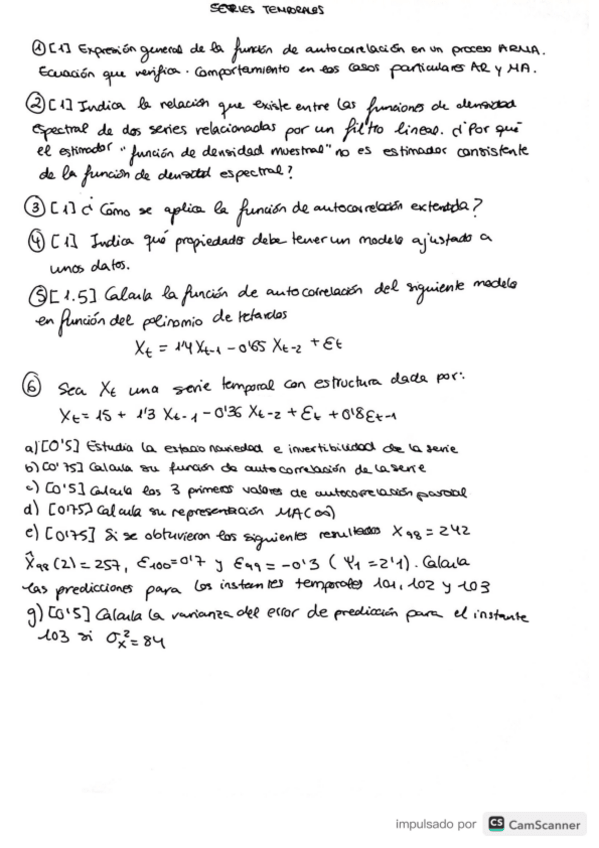 SERIES TEMPORALES
① [1] Expresión general de la función de autocorrelación en un proceso ARMA.
Ecuación que verifica. Comportamiento en los casos particulares AR y MA.
② [1] Indica la relación que existe entre las funciones de densidad
espectral de dos series relacionadas por un filtro lineal. ¿Por qué
el estimador "función de densidad muestral" no es estimador consistente
de la función de densidad espectral?
③ [1] ¿Cómo se aplica la función de autocorrelación extendida?
④ [1] Indica qué propiedades debe tener un modelo ajustado a
unos datos.
⑤ [1.5] Calcula la función de autocorrelación del siguiente modelo
en función del polinomio de retardos
Xt = 1'4 Xt-1 - 0'65 Xt-2 + Ɛt
⑥ Sea Xt una serie temporal con estructura dada por:
Xt = 15 + 1'3 Xt-1 - 0'36 Xt-2 + Ɛt + 0'8 Ɛt-1
a) [0'5] Estudia la estacionariedad e invertibilidad de la serie
b) [0'75] Calcula su función de autocorrelación de la serie
c) [0'5] Calcula los 3 primeros valores de autocorrelación parcial
d) [0'75] Calcula su representación MA(∞)
e) [0'75] Si se obtuvieron los siguientes resultados X98 = 242
X̂98(2) = 257, Ɛ100 = 0'7 y Ɛ99 = -0'3 (Ψ1 = 2'1). Calcula
las predicciones para los instantes temporales 101, 102 y 103
g) [0'5] Calcula la varianza del error de predicción para el instante
103 si σx² = 84
impulsado por CS CamScanner